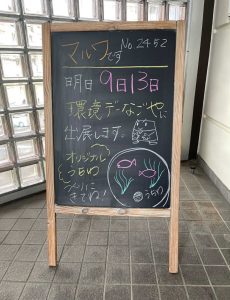 マルワです No.2452
明日9日13日
環境デーなごやに
出展します。
オリジナル
うちわ
つくりに
きてね!
うちわ